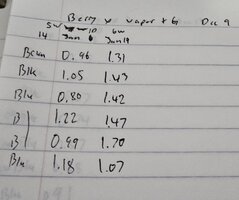 Berry x Vapor + G Dec 9
5w 10 6w
14 Jan 6 Jan 19
0.96 1.31
Blk 1.05 1.43
Blu 0.80 1.42
B 1.22 1.47
B 0.99 1.70
Blu 1.18 1.07